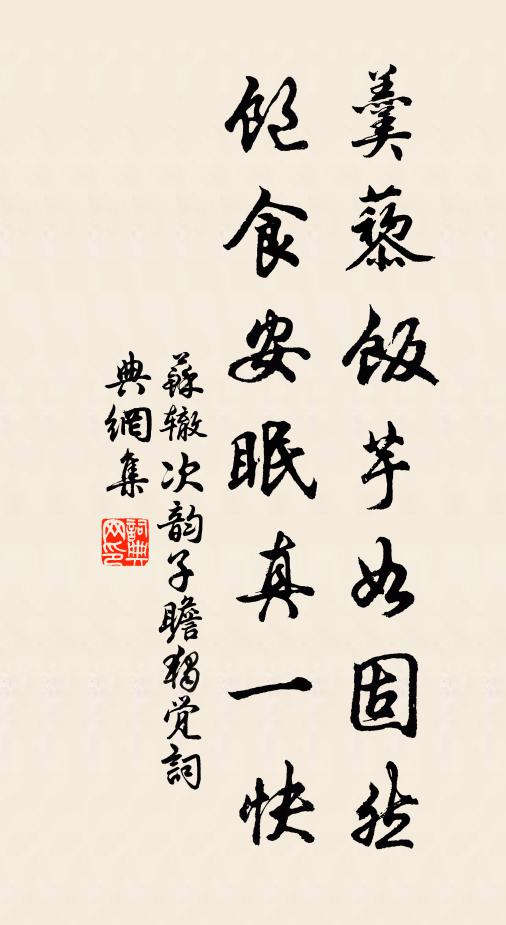 羹藜飯芋如固然
飽食安眠真一快
蘇辙次韵子瞻獨觉詞
典網集
詞典网印